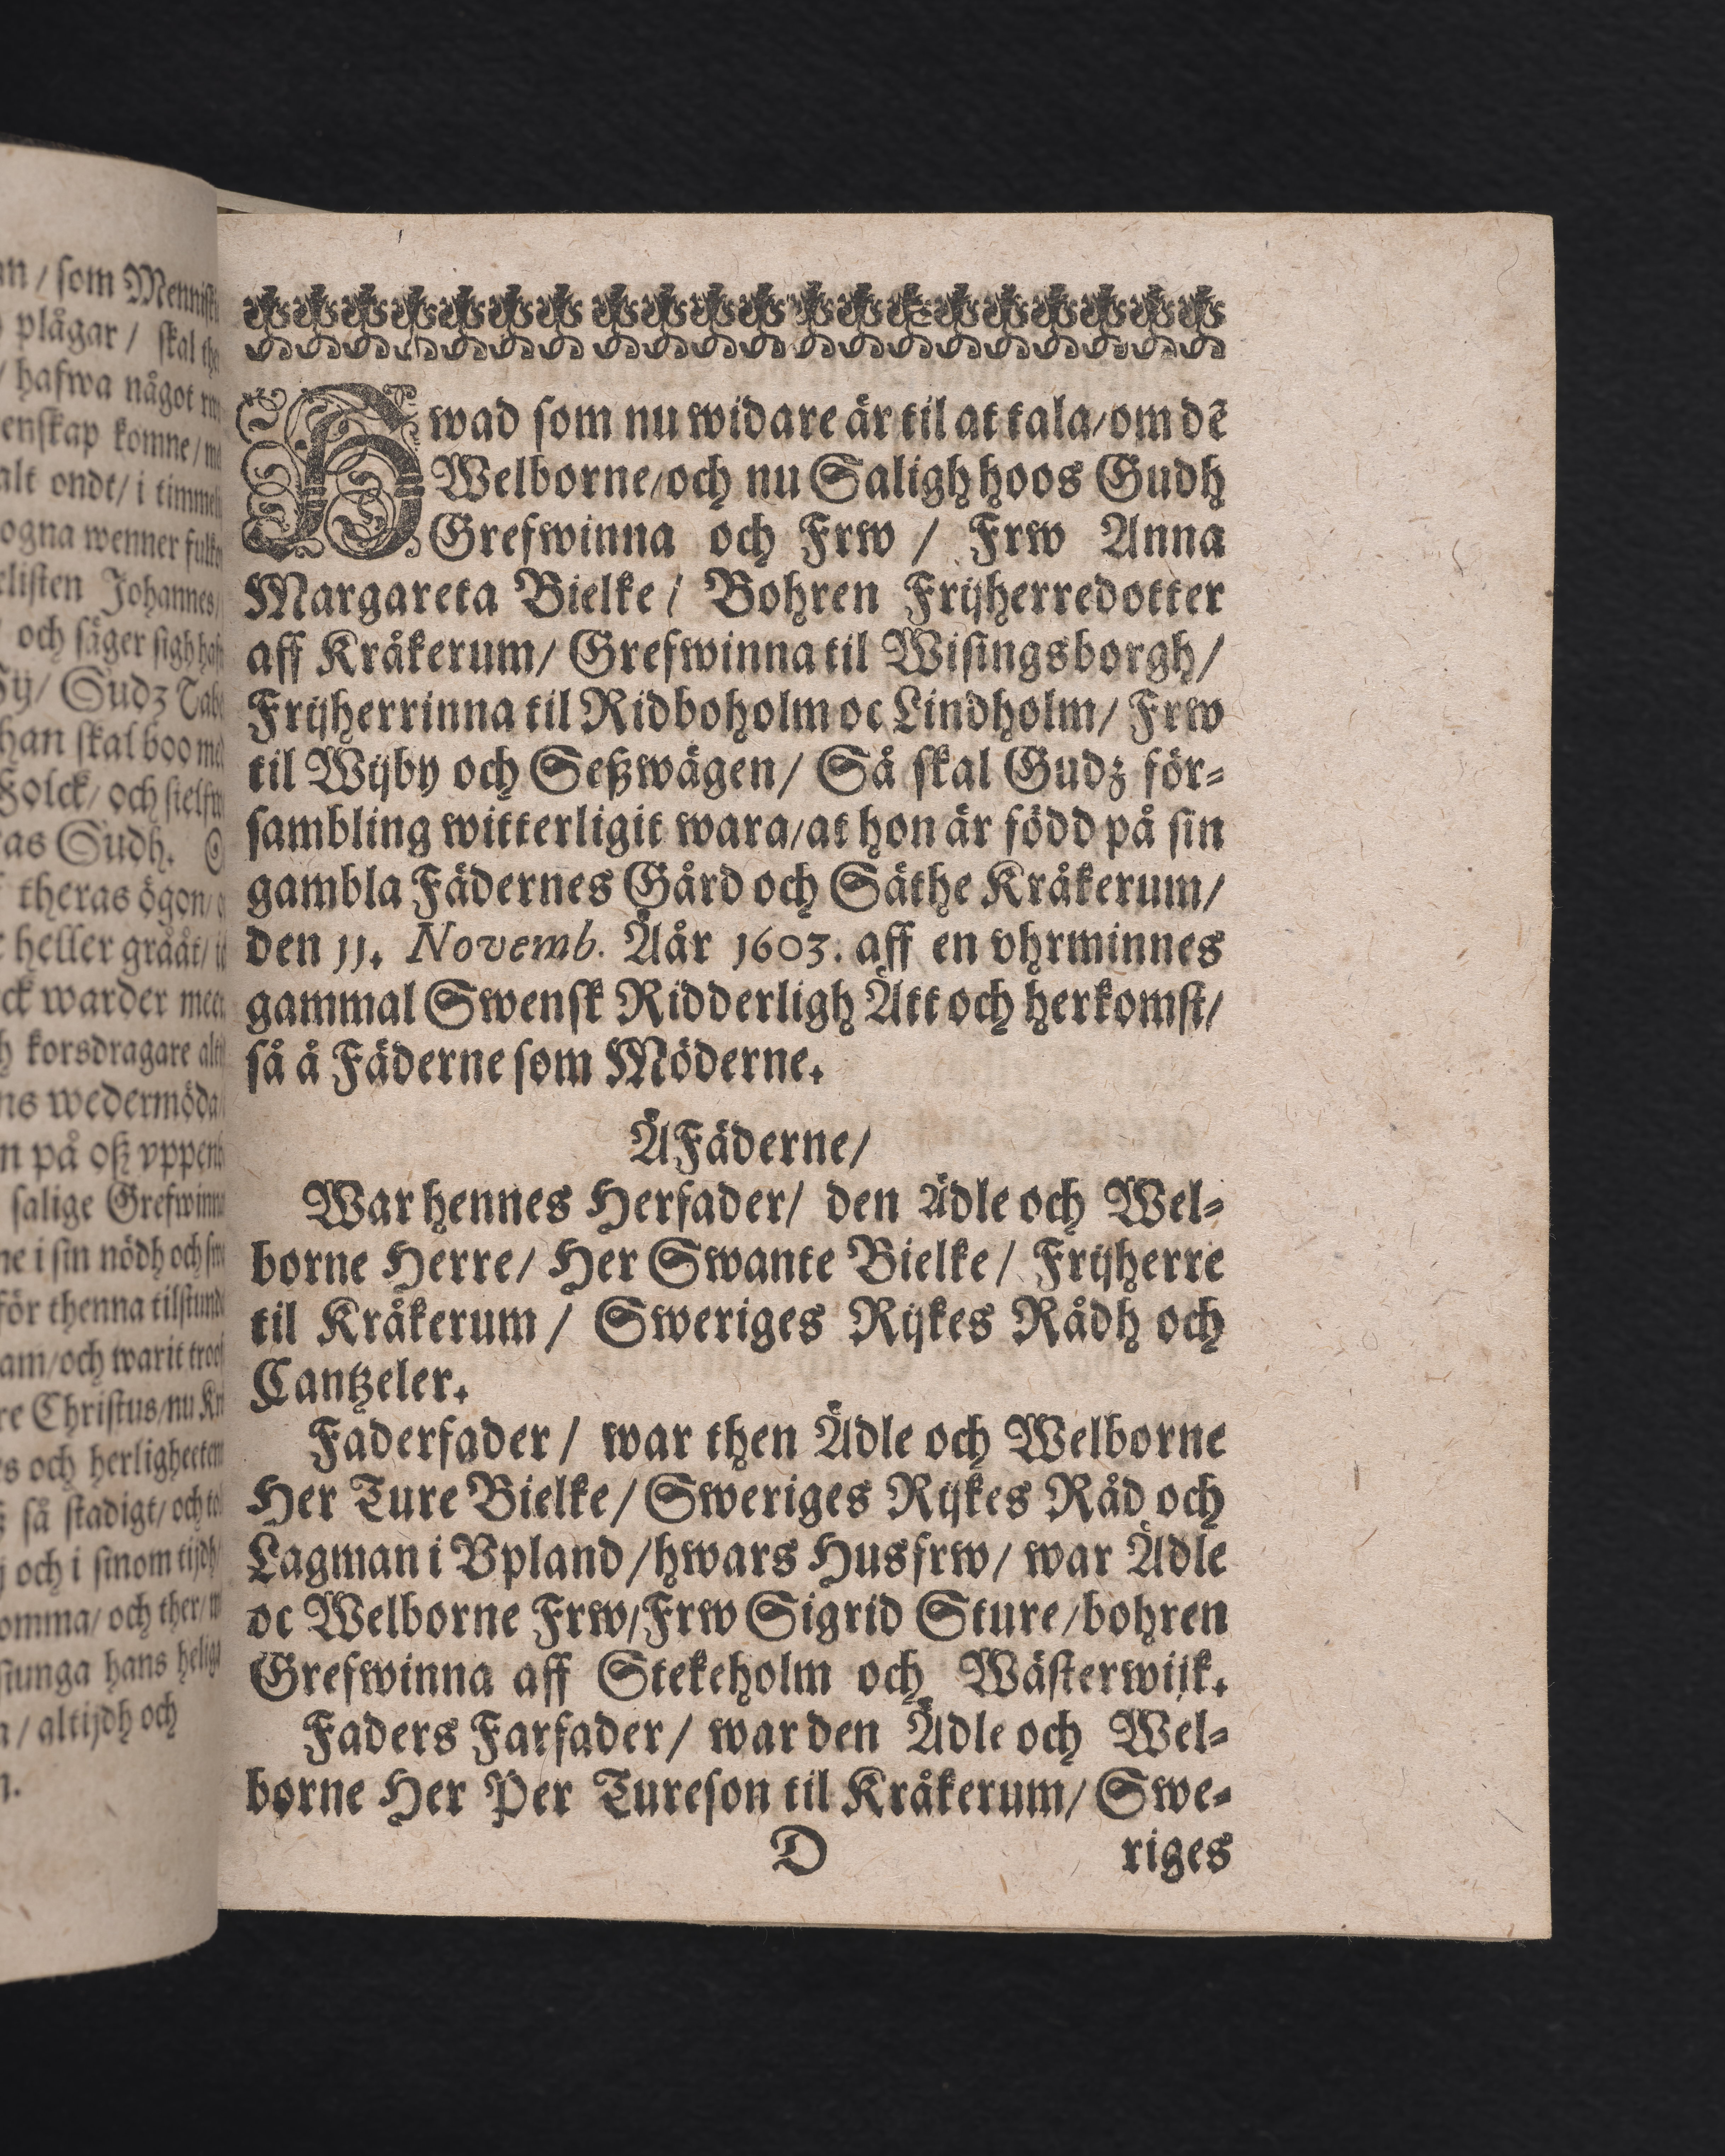 n / som Mennisk
plågar / skal the
/ hafwa något
enskap komne /
alt ondt / i timmeli
ogna wenner
elisten Johannes /
och säger sigh
Gudz
han skal boo med
Folck / och sielfw
as Gudh.
theras ögon /
heller grååt /
ck warder meer
korsdragare alt
ns wedermöda /
n på oß vppenb
salige Grefwinn
ne i sin nödh och
för thenna tilstund
am / och warit troo
re Christus / nu
s och herligheeten
så stadigt / och
och i sinom tijdh /
omma / och ther /
siunga hans helig
a / altijdh och
n.
Hwad som nu widare är til at tala / om dē
Welborne / och nu Saligh hoos Gudh
Grefwinna och Frw / Frw Anna
Margareta Bielke / Bohren Frijherredotter
aff Kråkerum / Grefwinna til Wisingsborgh /
Frijherrinna til Ridboholm oc Lindholm / Frw
til Wijby och Seßwägen / Så skal Gudz för-
sambling witterligit wara / at hon är född på sin
gambla Fädernes Gård och Säthe Kråkerum /
den 11. Novemb. Åår 1603. aff en vhrminnes
gammal Swensk Ridderligh Ätt och herkomst /
så å Fäderne som Möderne.
Å Fäderne /
War hennes Herfader / den Ädle och Wel-
borne Herre / Her Swante Bielke / Frijherre
til Kråkerum / Sweriges Rijkes Rådh och
Cantzeler.
Faderfader / war then Ädle och Welborne
Her Ture Bielke / Sweriges Rijkes Råd och
Lagman i Vpland / hwars Husfrw / war Ädle
oc Welborne Frw / Frw Sigrid Sture / bohren
Grefwinna aff Stekeholm och Wästerwijk.
Faders Farfader / war den Ädle och Wel-
borne Her Per Tureson til Kråkerum / Swe-
D riges